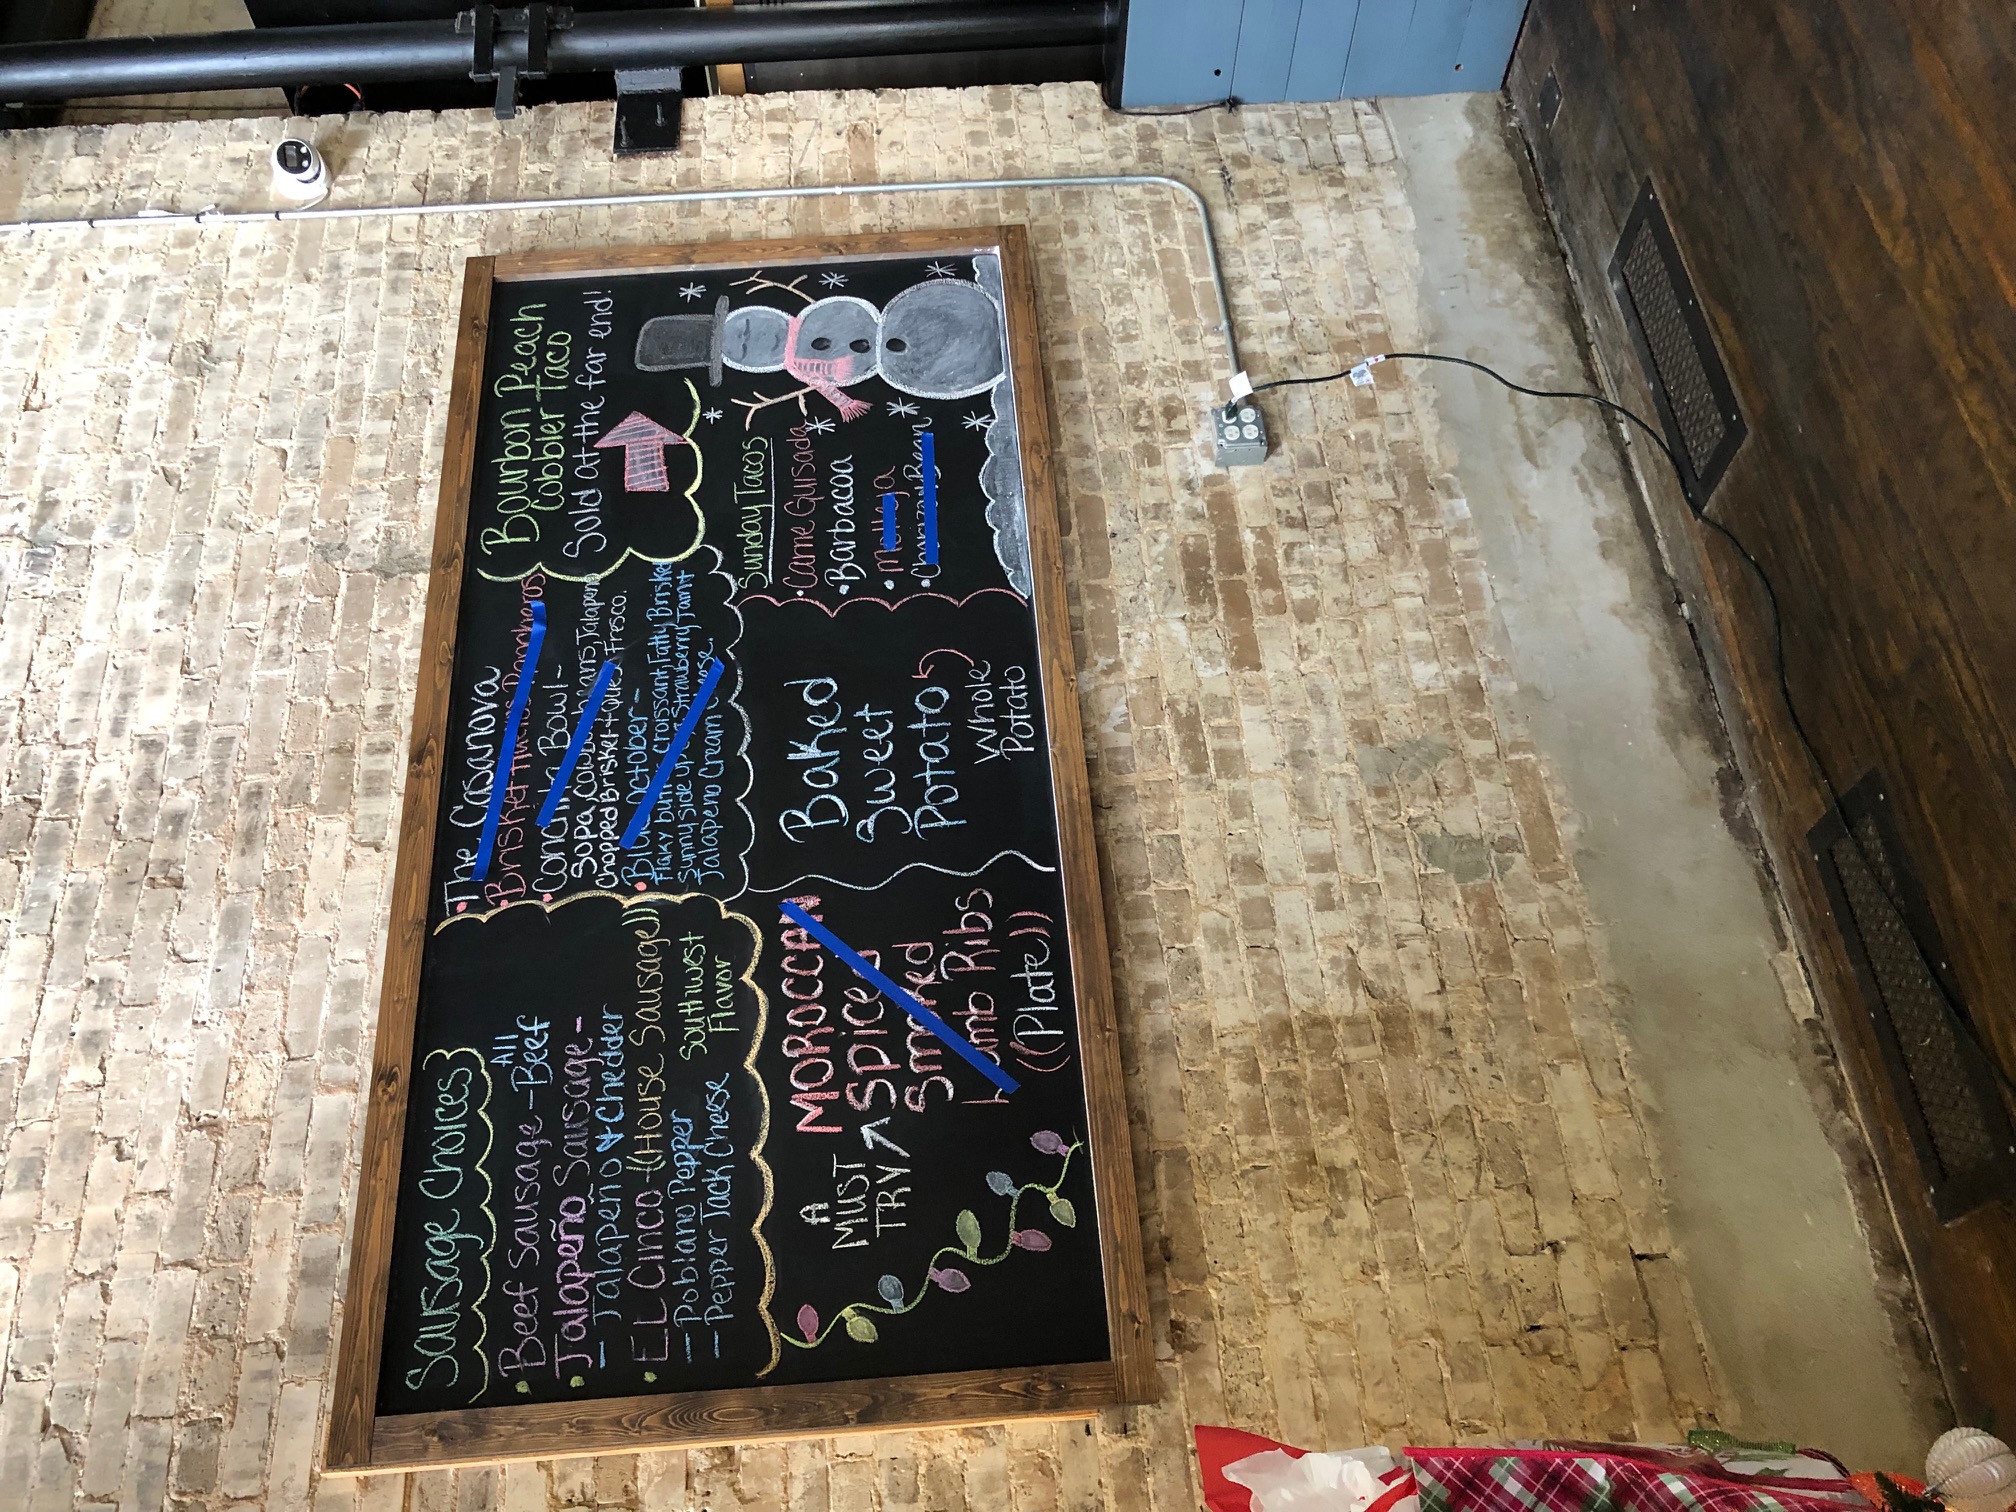 Sausage Choices
• Beef Sausage - All Beef
• Jalapeño Sausage -
- Jalapeno & Chedder
• EL Cinco - (House Sausage))
- Poblano Pepper
- Pepper Jack Cheese
Southwest
Flavor
The Casanova
• Brisket Huevos Rancheros
• Conchin Bowl -
Sopa, Cowboy Beans, Jalapeno
Chopped Brisket + Queso Fresco.
• Blue October -
Flaky buttery Croissant, Fatty Brisket
Sunny side up Strawberry Jam +
Jalapeno Cream Cheese.
Bourbon Peach
Cobbler Taco
Sold at the far end!
A
MUST
TRY
MOROCCAN
Spiced
Smoked
Lamb Ribs
((Plate))
Baked
Sweet
Potato
Whole
Potato
Sunday Tacos
• Carne Guisada
• Barbacoa
•
• Bean